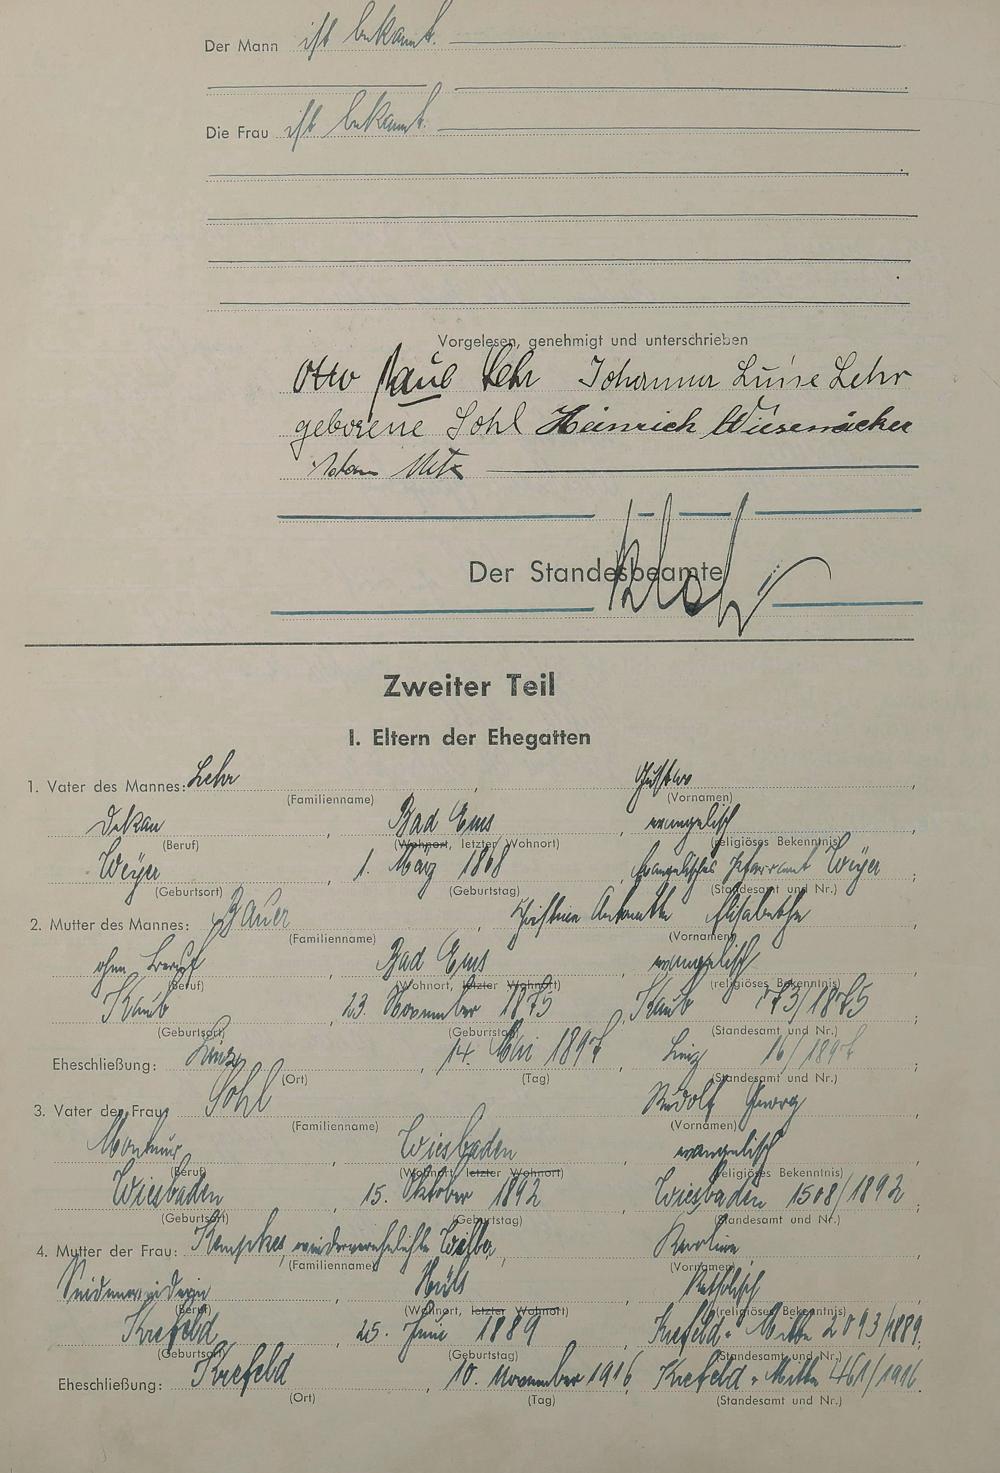 Der Mann ist bekannt.
Die Frau ist bekannt.
Vorgelesen, genehmigt und unterschrieben
Otto Paul Lehr Johanna Luise Lehr
geborene Sohl Heinrich Wiesenäcker
Adam
Der Standesbeamte
Zweiter Teil
I. Eltern der Ehegatten
1. Vater des Mannes: Lehr Gustav
(Familienname) (Vornamen)
Dekan, Bad Ems, evangelisch
(Beruf) (Wohnort, letzter Wohnort) (religiöses Bekenntnis)
Weyer, 1. März 1868 Evangelisches Pfarramt Weyer;
(Geburtsort) (Geburtstag) (Standesamt und Nr.)
2. Mutter des Mannes: Bauer, Christine Antonette Elisabethe
(Familienname) (Vornamen)
ohne Beruf, Bad Ems, evangelisch
(Beruf) (Wohnort, letzter Wohnort) (religiöses Bekenntnis)
Kaub, 23. November 1875, Kaub 73/1875
(Geburtsort) (Geburtstag) (Standesamt und Nr.)
Eheschließung: 14. Mai 1897, 16/1897;
(Ort) (Tag) (Standesamt und Nr.)
3. Vater der Frau: Sohl Rudolf Georg
(Familienname) (Vornamen)
Monteur, Wiesbaden, evangelisch
(Beruf) (Wohnort, letzter Wohnort) (religiöses Bekenntnis)
Wiesbaden, 15. Oktober 1892, Wiesbaden 1508/1892;
(Geburtsort) (Geburtstag) (Standesamt und Nr.)
4. Mutter der Frau: Kempkes, wiederverehelichte Karoline
(Familienname) (Vornamen)
Hüls, katholisch
(Beruf) (Wohnort, letzter Wohnort) (religiöses Bekenntnis)
Krefeld, 25. Juni 1889 Krefeld-Mitte 2093/1889.
(Geburtsort) (Geburtstag) (Standesamt und Nr.)
Eheschließung: Krefeld, 10. November 1916, Krefeld-Mitte 461/1916.
(Ort) (Tag) (Standesamt und Nr.)